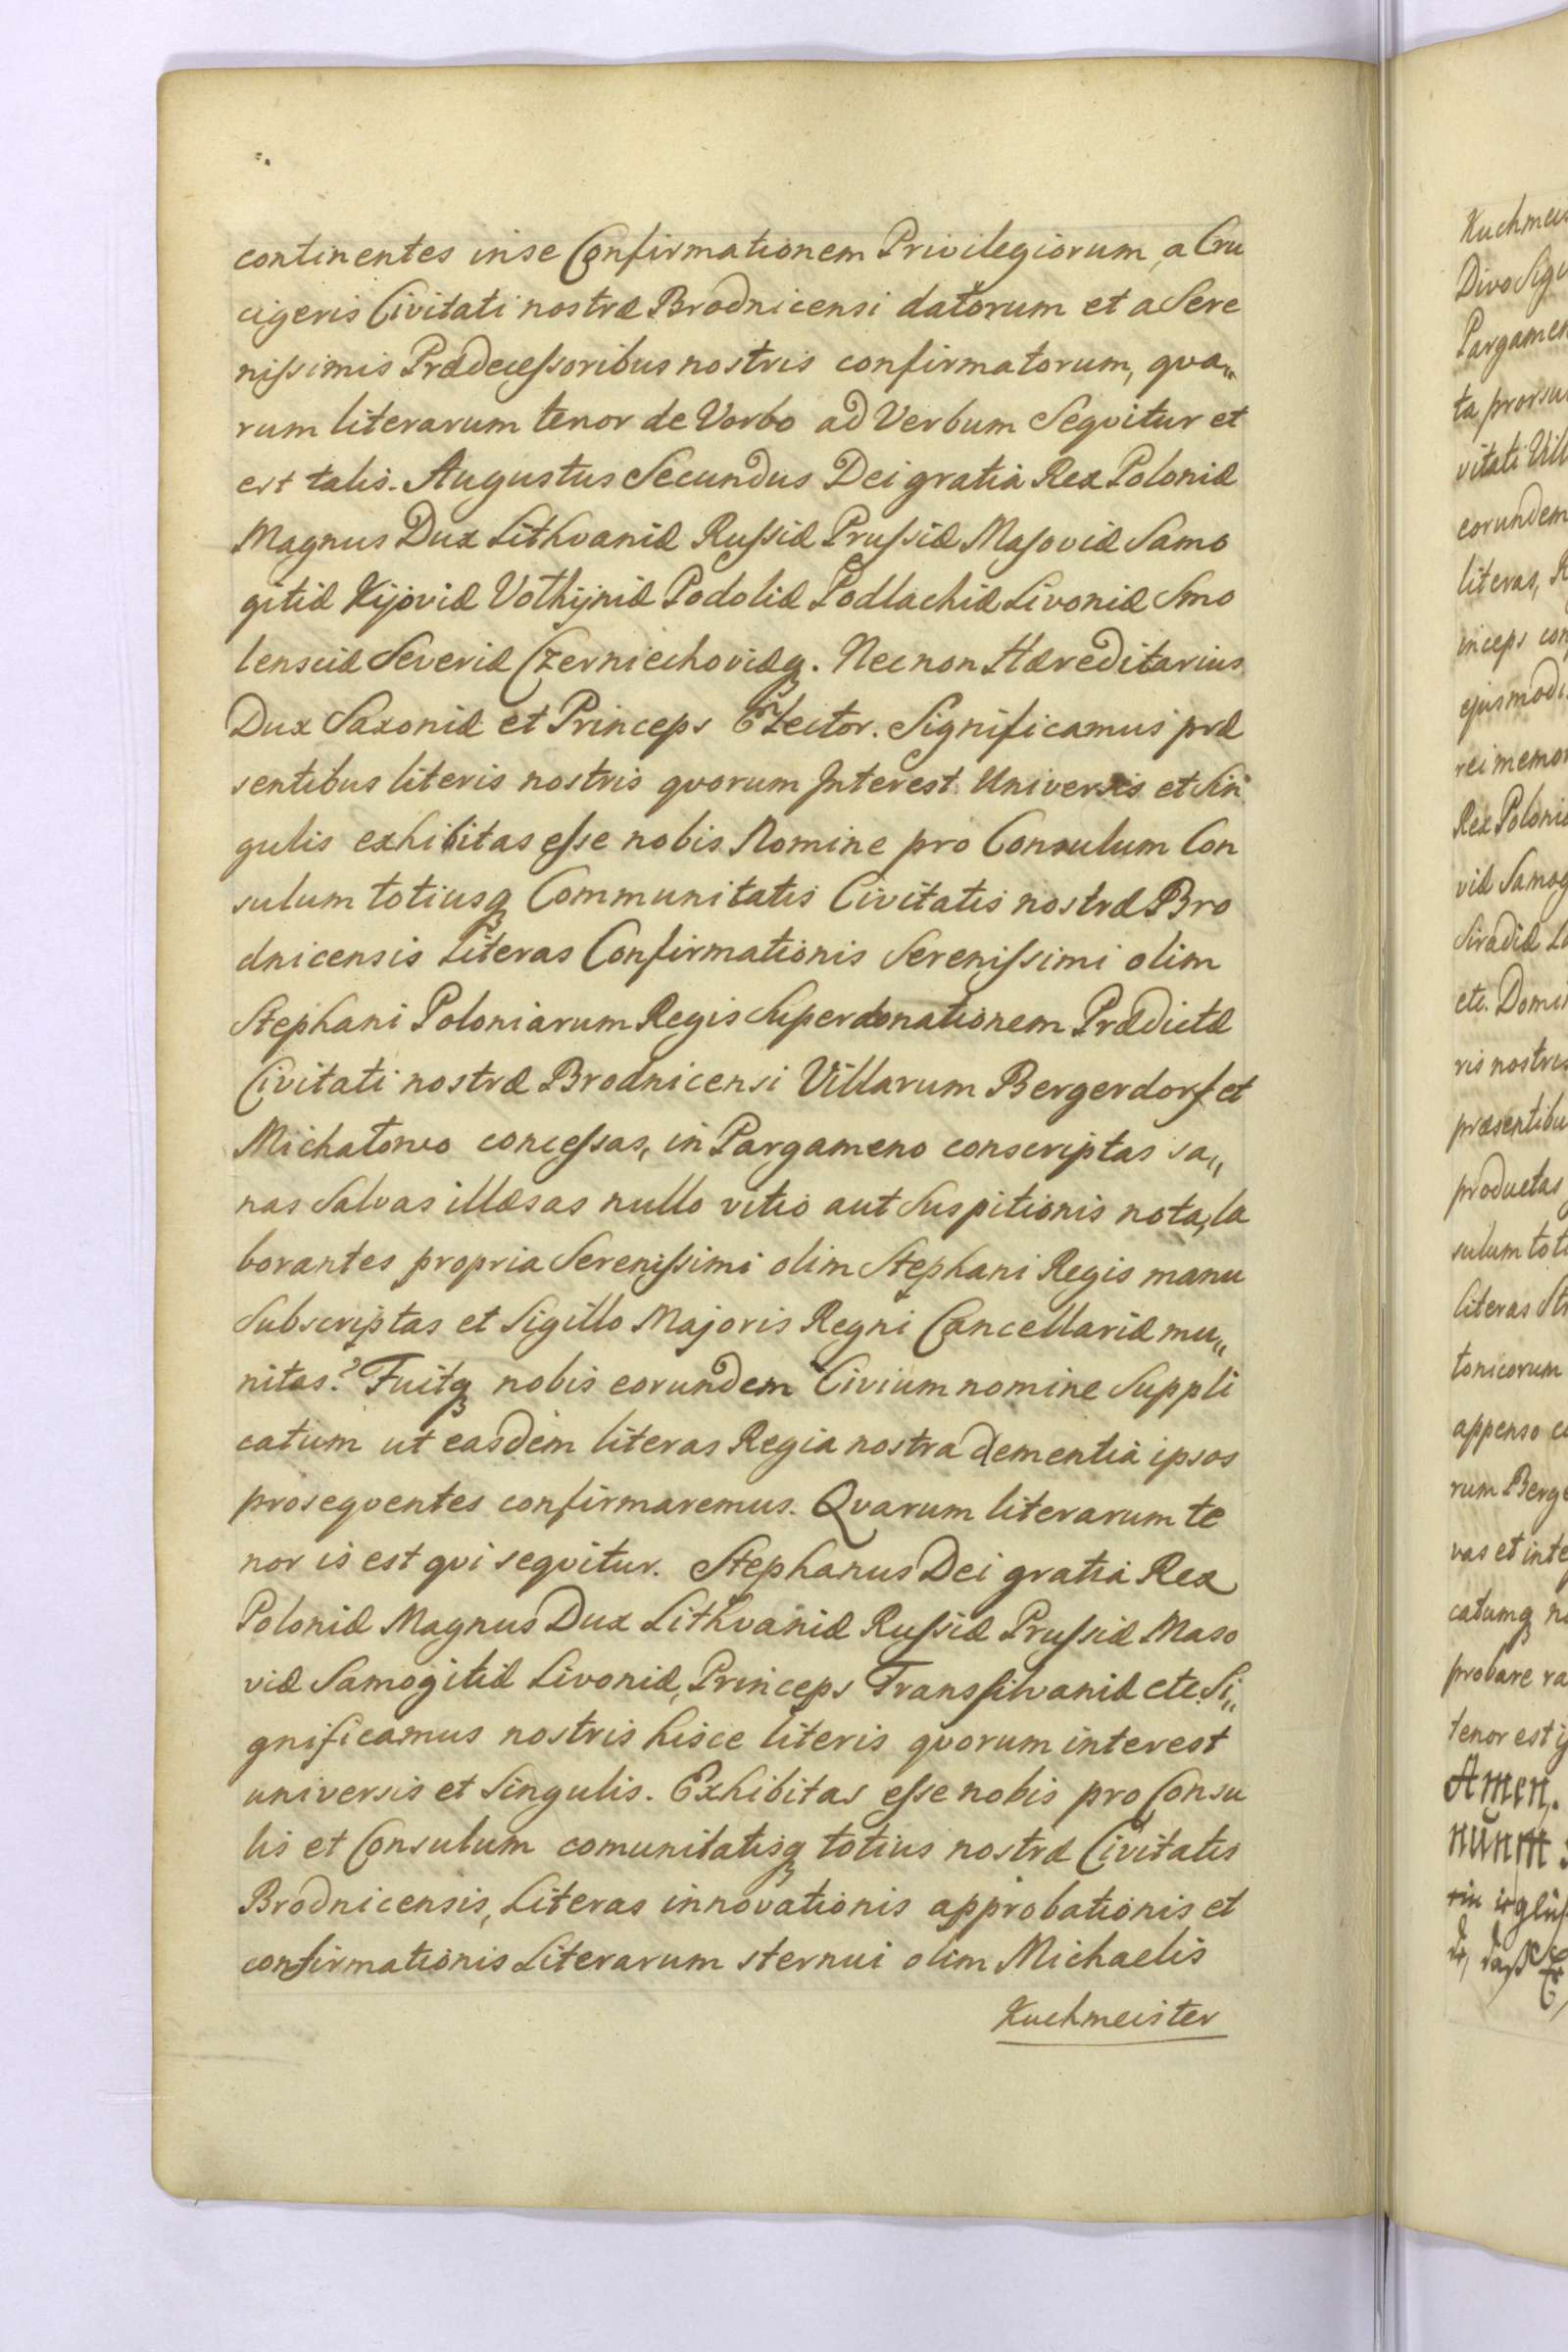 continentes in se Confirmationem Privilegiorum, a Cru
cigeris Civitati nostræ Brodnicensi datorum et a Sere
nissimis Prædecessoribus nostris confirmatorum, qva„
rum literarum tenor de Verbo ad Verbum Seqvitur et
est talis. Augustus Secundus Dei gratia Rex Poloniæ
Magnus Dux Lithvaniæ Russiæ Prussiæ Masoviæ Samo
gitiæ Kijoviæ Volhijniæ Podoliæ Podlachiæ Livoniæ Smo
lensciæ Severiæ Czerniechoviæq. Necnon Hæreditarius
Dux Saxoniæ et Princeps Elector. Significamus præ
sentibus literis nostris qvorum Interest Universis et Sin
gulis exhibitas esse nobis Nomine pro Consulum Con
sulum totiusq Communitatis Civitatis nostræ Bro
dnicensis Literas Confirmationis Serenissimi olim
Stephani Poloniarum Regis Super donationem Prædictæ
Civitati nostræ Brodnicensi Villarum Bergerdorf et
Michatowo concessas, in Pargameno conscriptas sa„
nas Salvas illæsas nullo vitio aut Suspitionis nota, la
borantes propria Serenissimi olim Stephani Regis manu
Subscriptas et Sigillo Majoris Regni Cancellariæ mu„
nitas? Fuitq nobis eorundem Civium nomine Suppli
catum ut easdem literas Regia nostra clementia ipsos
proseqventes confirmaremus. Qvarum literarum te
nor is est qvi seqvitur. Stephanus Dei gratia Rex
Poloniæ Magnus Dux Lithvaniæ Russiæ Prussiæ Maso
viæ Samogitiæ Livoniæ, Princeps Transsilvaniæ etc. Si„
gnificamus nostris hisce literis qvorum interest
universis et Singulis. Exhibitas esse nobis pro Consu
lis et Consulum comunitatisq totius nostræ Civitatis
Brodnicensis, Literas innovationis approbationis et
confirmationis Literarum sternui olim Michaelis
Kuchmeister
Kuchmeis
Divo Sigi
Pargamen
ta prorsu
vitati Vill
eorundem
literas,
inceps con
ejusmodi
rei memor
Rex Poloni
viæ Samog
Siradiæ La
etc. Domi
ris nostris
præsentibu
productas
sulum toti
literas Str
tonicorum
appenso
rum Berge
vas et inte
catumq no
probare ra
tenor est
Amen.